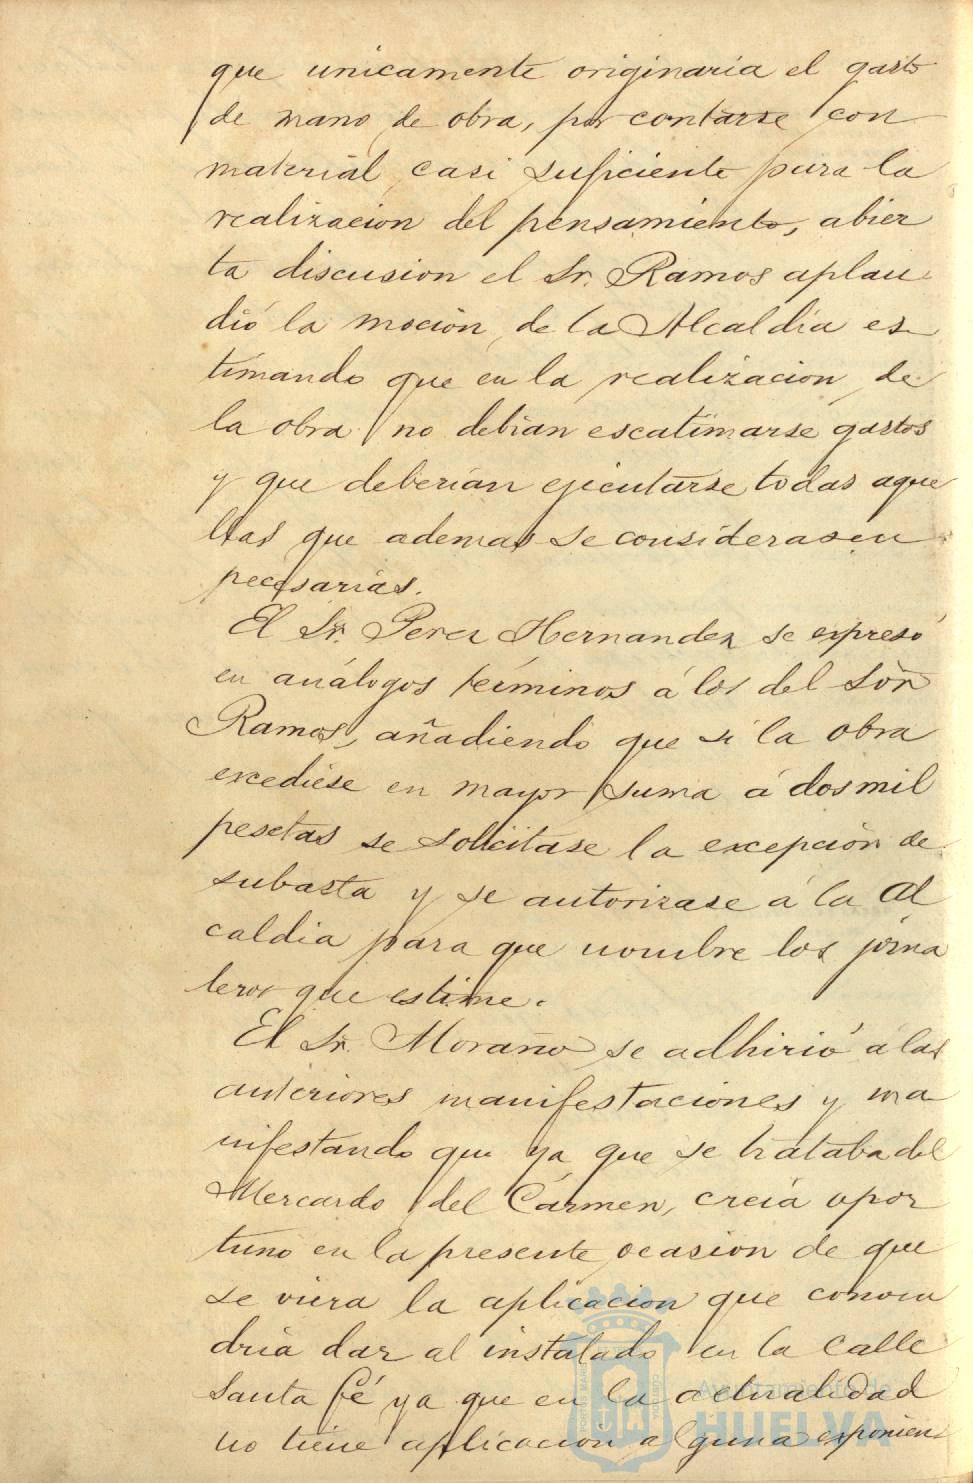 que unicamente originaria el gasto
de mano de obra, por contarse con
material casi suficiente para la
realizacion del pensamiento, abier
ta discusion el Sr. Ramos aplau
dió la moción de la Alcaldía es
timando que en la realizacion de
la obra no debian escatimarse gastos
y que deberían ejecutarse todas aque
llas que ademas se considerasen
necesarias.
El Sr. Perez Hernandez se expresó
en análogos términos á los del Sõr
Ramos, añadiendo que si la obra
excediese en mayor suma á dos mil
pesetas se solicitase la excepción de
subasta y se autorizase á la Al
caldia para que nombre los jorna
leros que estime.
El Sr. Moraño se adhirió á las
anteriores manifestaciones y ma
nifestando que ya que se trataba del
Mercardo del Cármen, creía opor
tuno en la presente ocasion de que
se viera la aplicacion que conven
dria dar al instalado en la calle
Santa Fé ya que en la actualidad
no tiene aplicacion alguna exponien
Ayuntamiento de
HUELVA